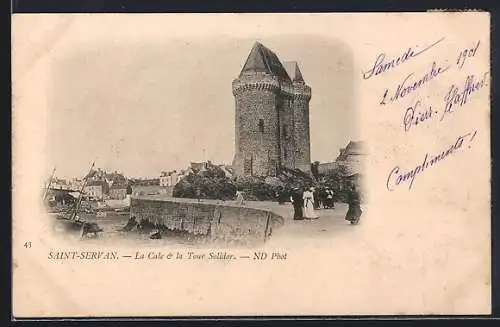 Samedi
2 Novembre 1901
Compliments!
43
SAINT-SERVAN. — La Cale & la Tour Solidor. — ND Phot